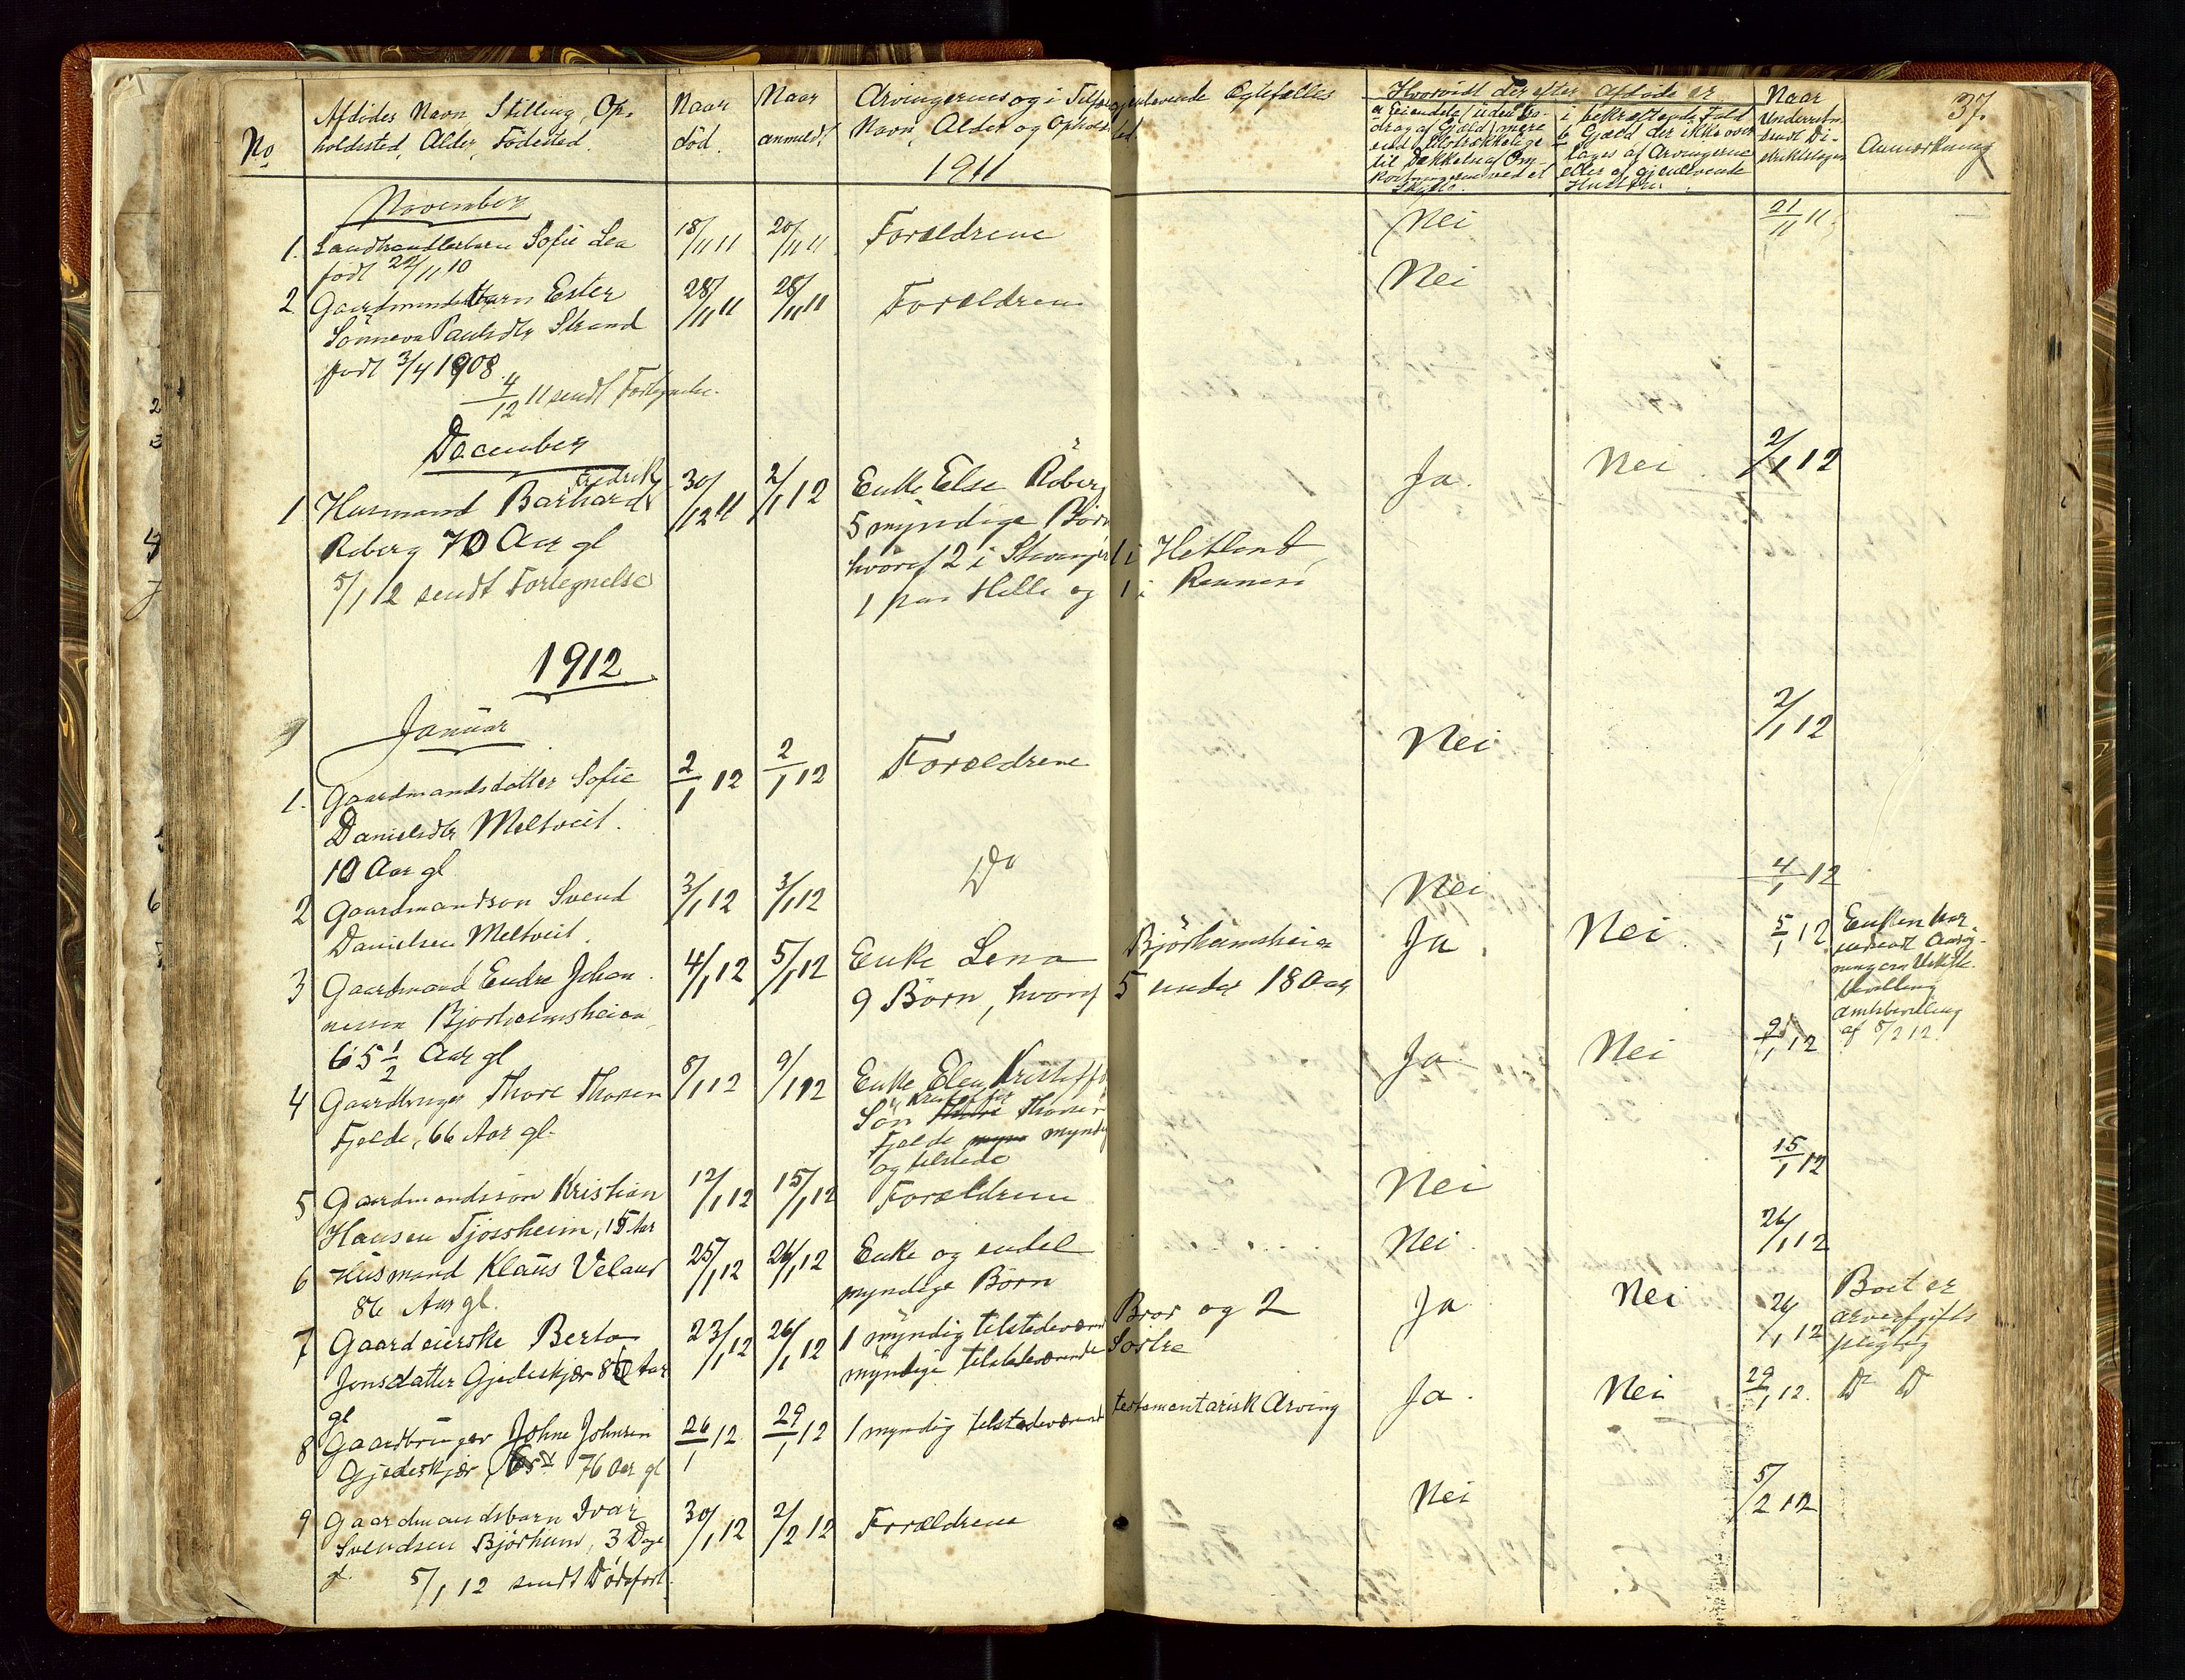 37.
No
Afdödes Navn, Stilling, Op-
holdssted, Alder, Födested.
Naar
död.
Naar
anmeldt
Arvingernes og i Tilfælde gjenlevende Ægtefælles
Navn, Alder og Opholdssted
1911
Hvorvidt der efter Afdøde er
a Eiendele (uden Fra-
drag af Gjæld) mere
end tilstrækkelige
til Dækkelse af Om-
kostningerne ved et
Skifte.
i bekræftende Fald
b Gjæld der ikke over
tages af Arvingerne
eller af gjenlevende
Naar
Underretn.
sendt Di-
striktslægen
Anmærkning
November
1. Landhandlerbarn Sofie Lea 18/11 11 20/11 11 Forældrene Nei 21/11 11
født 22/11 10
2 Gaardmandsbarn Ester 28/11 11 28/11 11 Forældrene Nei
Sönneva Paulsdtr Strand
født 3/4 1908
4/12 11 sendt Fortegnelse.
December
Fredrik
1 Husmand Barhard 30/12 11 2/1 12 Enke Else Roberg Ja. Nei 2/1 12
Roberg 70 Aar gl 5 myndige Börn
hvoraf 2 i Stavanger 1 i Hetland,
5/1 12 sendt Fortegnelse 1 paa Helle og 1 i Rennesö
1912
Januar
1. Gaardmandsdatter Sofie 2/1 12 2/1 12 Forældrene Nei 2/1 12
Danielsdtr Meltveit.
10 Aar gl
2 Gaardmandsön Svend 3/1 12 3/1 12 Do Nei 4/1 12
Danielsen Meltveit.
3 Gaardmand Endre Johan- 4/1 12 5/1 12 Enke Lena Björheimsheia Ja. Nei. 5/1 12 Enken har
nessen Bjørheimsheien, 9 Börn, hvoraf 5 under 18 Aar
65 1/2 Aar gl
bevilling
amtsbevilling
af 5/2 12.
4 Gaardbruger Thore Thorsen 8/1 12 9/1 12 Enke Elen Kristoffer Ja Nei 9/1 12
Fjelde, 66 Aar gl. Sön Kristoffer Thorsen
Fjelde myndig
og tilstede
5 Gaardmandssön Kristian 12/1 12 15/1 12 Forældrene Nei 15/1 12
Hansen Tjøssheim, 15 Aar
6 Husmand Klaus Veland 25/1 12 26/1 12 Enke og endel Nei 26/1 12
86 Aar gl. myndige Börn
7 Gaardeierske Berta 23/1 12 26/1 12 1 myndig tilstedeværende Bror og 2 Ja Nei 26/1 12 Boet er
Jonsdatter Gjedeskjær 80 Aar myndige tilstedeværende Söstre arveafgifts
gl pligtig
8 Gaardbruger Johne Johnsen 26/1 12 29/1 12 1 myndig tilstedeværende testamentarisk Arving Ja. Nei 29/1 12. Do Do
Gjedeskjær, 76 Aar gl
9 Gaardmandsbarn Ivar 30/1 12 2/2 12 Forældrene Nei 5/2 12
Svendsen Björheim, 3 Dage
gl. 5/1 12 sendt Dødsfort.